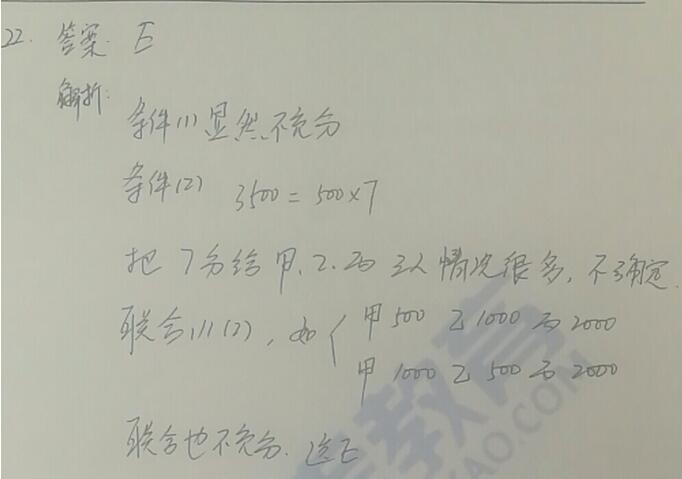 22. 答案. E
解析:
条件(1)显然不充分
条件(2) 3500=500×7
把7分给甲、乙、丙三人情况很多,不确定.
联合(1)(2),如{甲500 乙1000 丙2000
甲1000 乙500 丙2000
联合也不充分.选E
教育
AO.COM